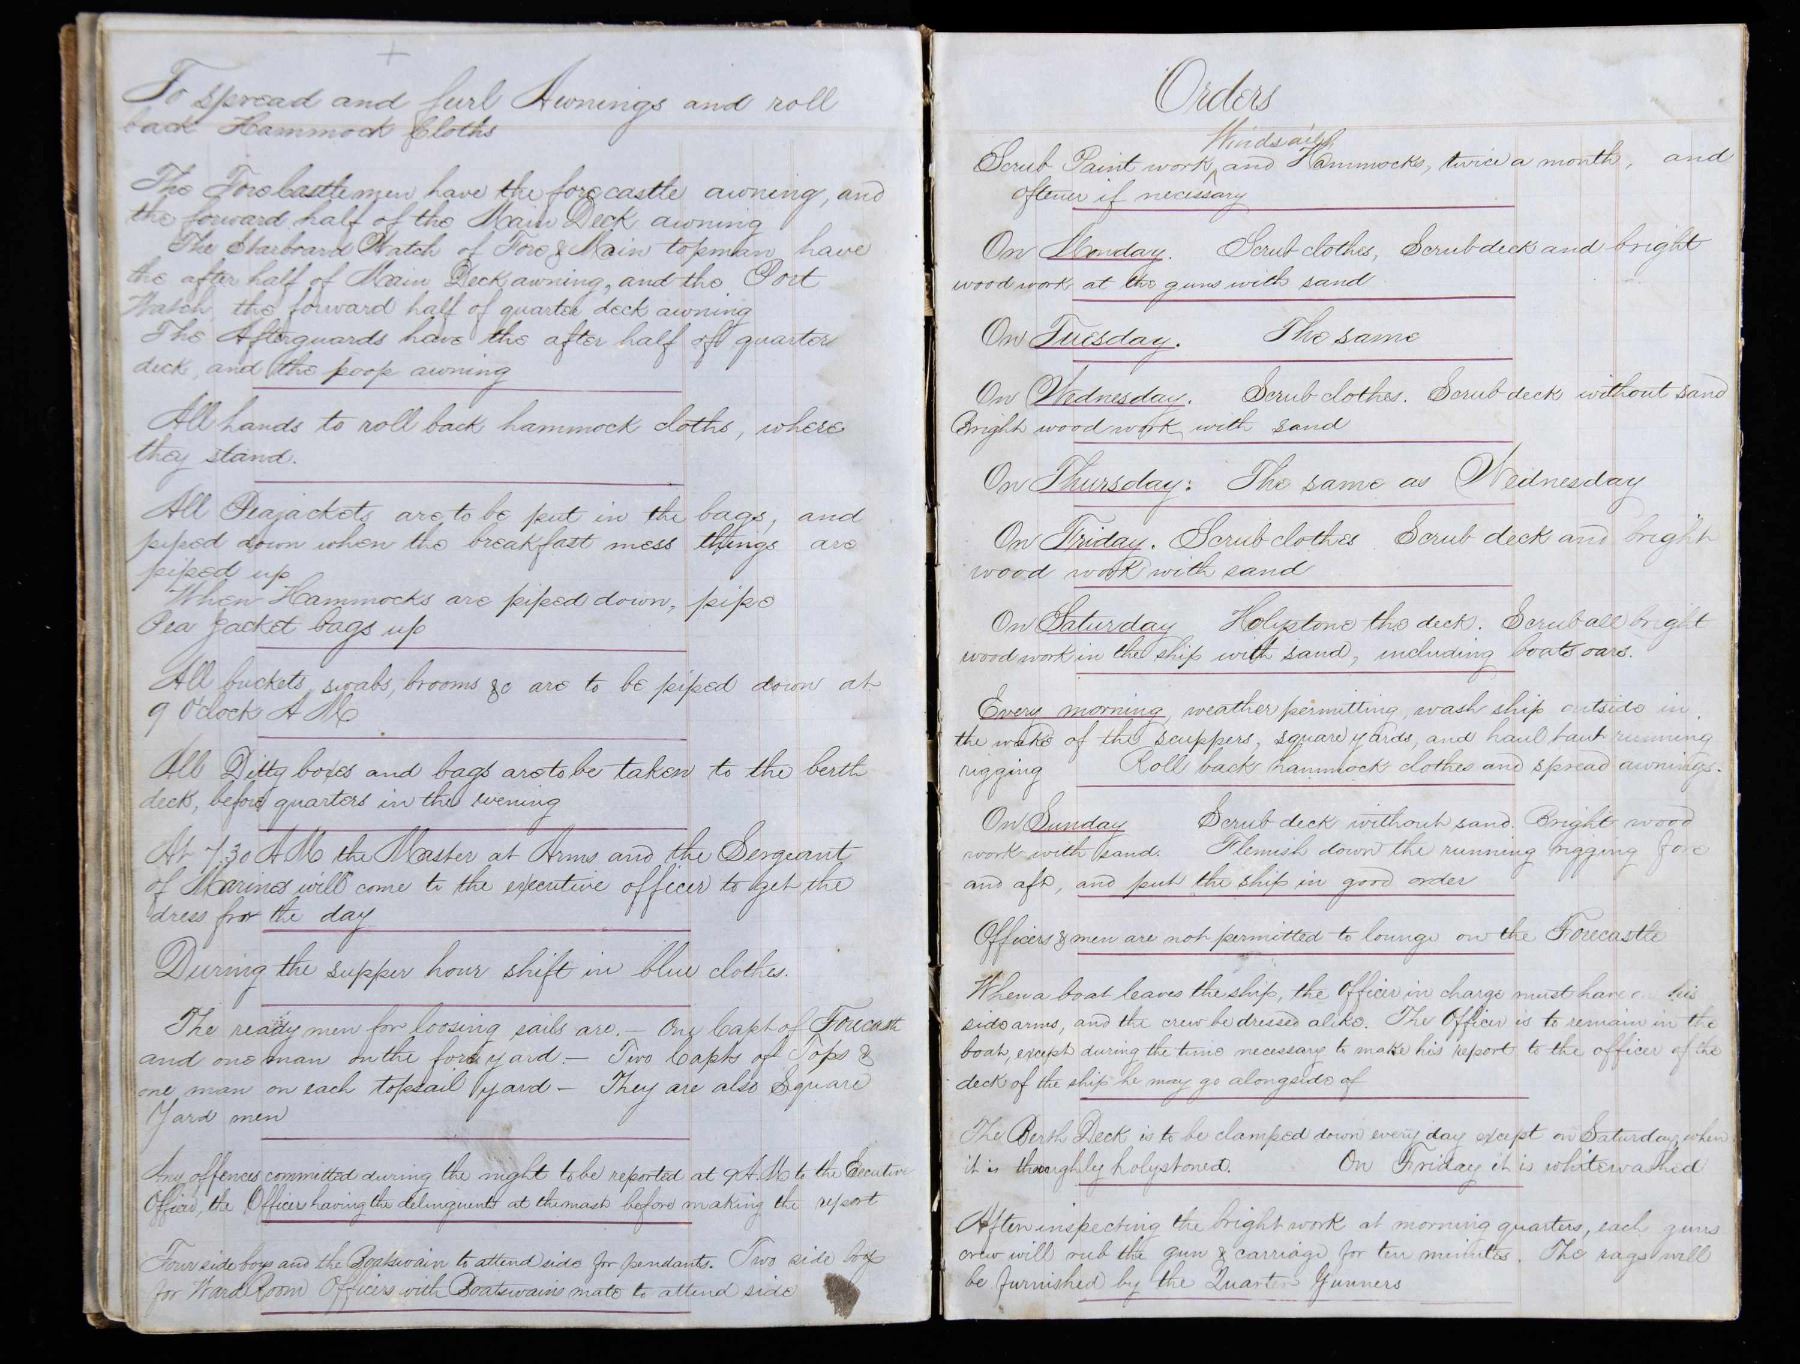 To spread and furl Awnings and roll
back Hammock Cloths
The Forecastlemen have the forecastle awning, and
the forward half of the Main Deck awning
The Starboard Watch of Fore & Main topmen have
the after half of Main Deck awning, and the Port
Watch the forward half of quarter deck awning
The Afterguards have the after half of quarter
deck, and the poop awning
All hands to roll back hammock cloths, where
they stand.
All Peajackets are to be put in the bags, and
piped down when the breakfast mess things are
piped up
When Hammocks are piped down, pipe
Pea Jacket bags up
All buckets, swabs, brooms &c are to be piped down at
9 O'clock A M
All Ditty boxes and bags are to be taken to the berth
deck, before quarters in the evening
At 7.30 A M the Master at Arms and the Sergeant
of Marines will come to the executive officer to get the
dress for the day
During the supper hour shift in blue clothes.
The ready men for loosing sails are. — One Capt of Forecastle
and one man on the fore yard — Two Capts of Tops &
one man on each topsail yard — They are also Square
Yard men
Any offences committed during the night to be reported at 9 A.M to the Executive
Officer, the Officer having the delinquents at the mast before making the report
Four side boys and the Boatswain to attend side for pendants. Two side boys
for Ward Room Officers with Boatswains mate to attend side
Orders
Windsails
Scrub Paint work, ^ and Hammocks, twice a month, and
oftener if necessary
On Monday. Scrub clothes, Scrub deck and bright
wood work at the guns with sand
On Tuesday. The same
On Wednesday. Scrub clothes. Scrub deck without sand
Bright wood work with sand
On Thursday: The same as Wednesday
On Friday. Scrub clothes Scrub deck and bright
wood work with sand
On Saturday Holystone the deck. Scrub all bright
wood work in the ship with sand, including boats oars.
Every morning, weather permitting, wash ship outside in
the wake of the scuppers, square yards, and haul taut running
rigging Roll back hammock clothes and spread awnings.
On Sunday Scrub deck without sand. Bright wood
work with sand. Flemish down the running rigging fore
and aft, and put the ship in good order
Officers & men are not permitted to lounge on the Forecastle
When a boat leaves the ship, the Officer in charge must have on his
side arms, and the crew be dressed alike. The Officer is to remain in the
boat, except during the time necessary to make his report to the officer of the
deck of the ship he may go alongside of
The Berth Deck is to be clamped down every day except on Saturday, when
it is thoroughly holystoned. On Friday it is whitewashed
After inspecting the bright work at morning quarters, each guns
crew will rub the gun & carriage for ten minutes. The rags will
be furnished by the Quarter Gunners